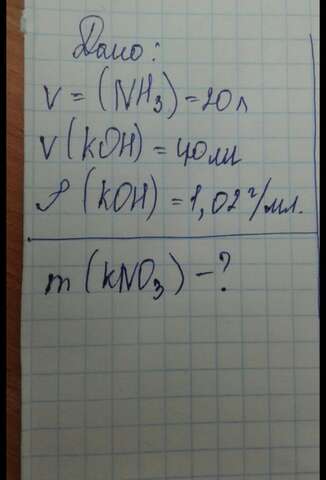 Дано:
V = (NH3) = 20л
V (KOH) = 40мл
ρ (KOH) = 1,02 г/мл.
m (KNO3) - ?